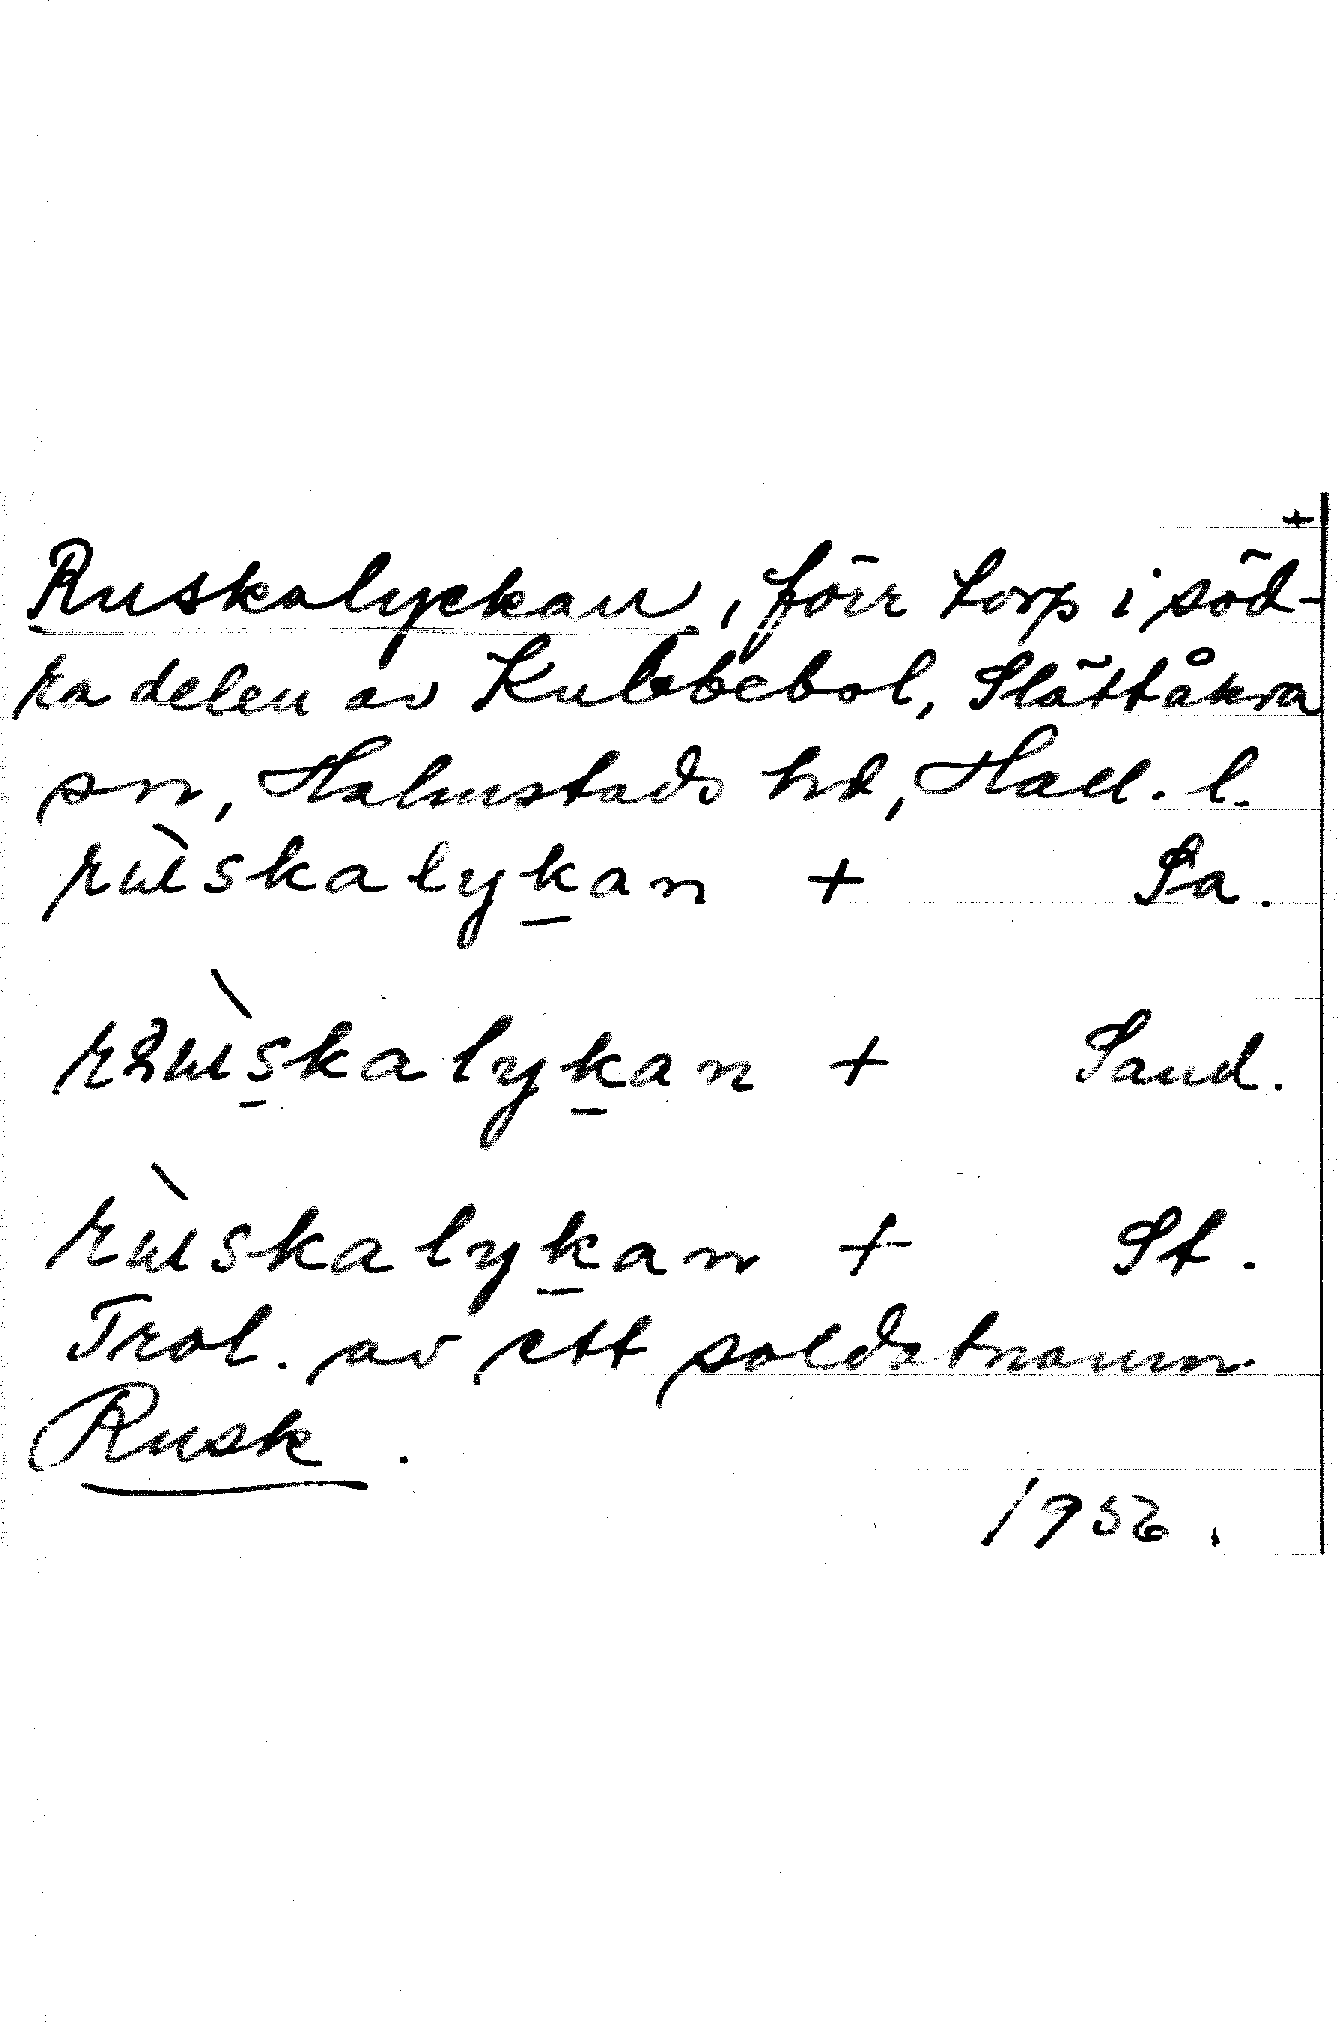 +
Ruskalyckan, förr torp i söd-
ra delen av Kulebebol, Slättåkra
sn, Halmstads hd, Hall. l.
rùskalykan + Sa.
skalykan + Sand.
rùskalykan + St.
Trol. av ett soldatnamn
Rusk.
1956.